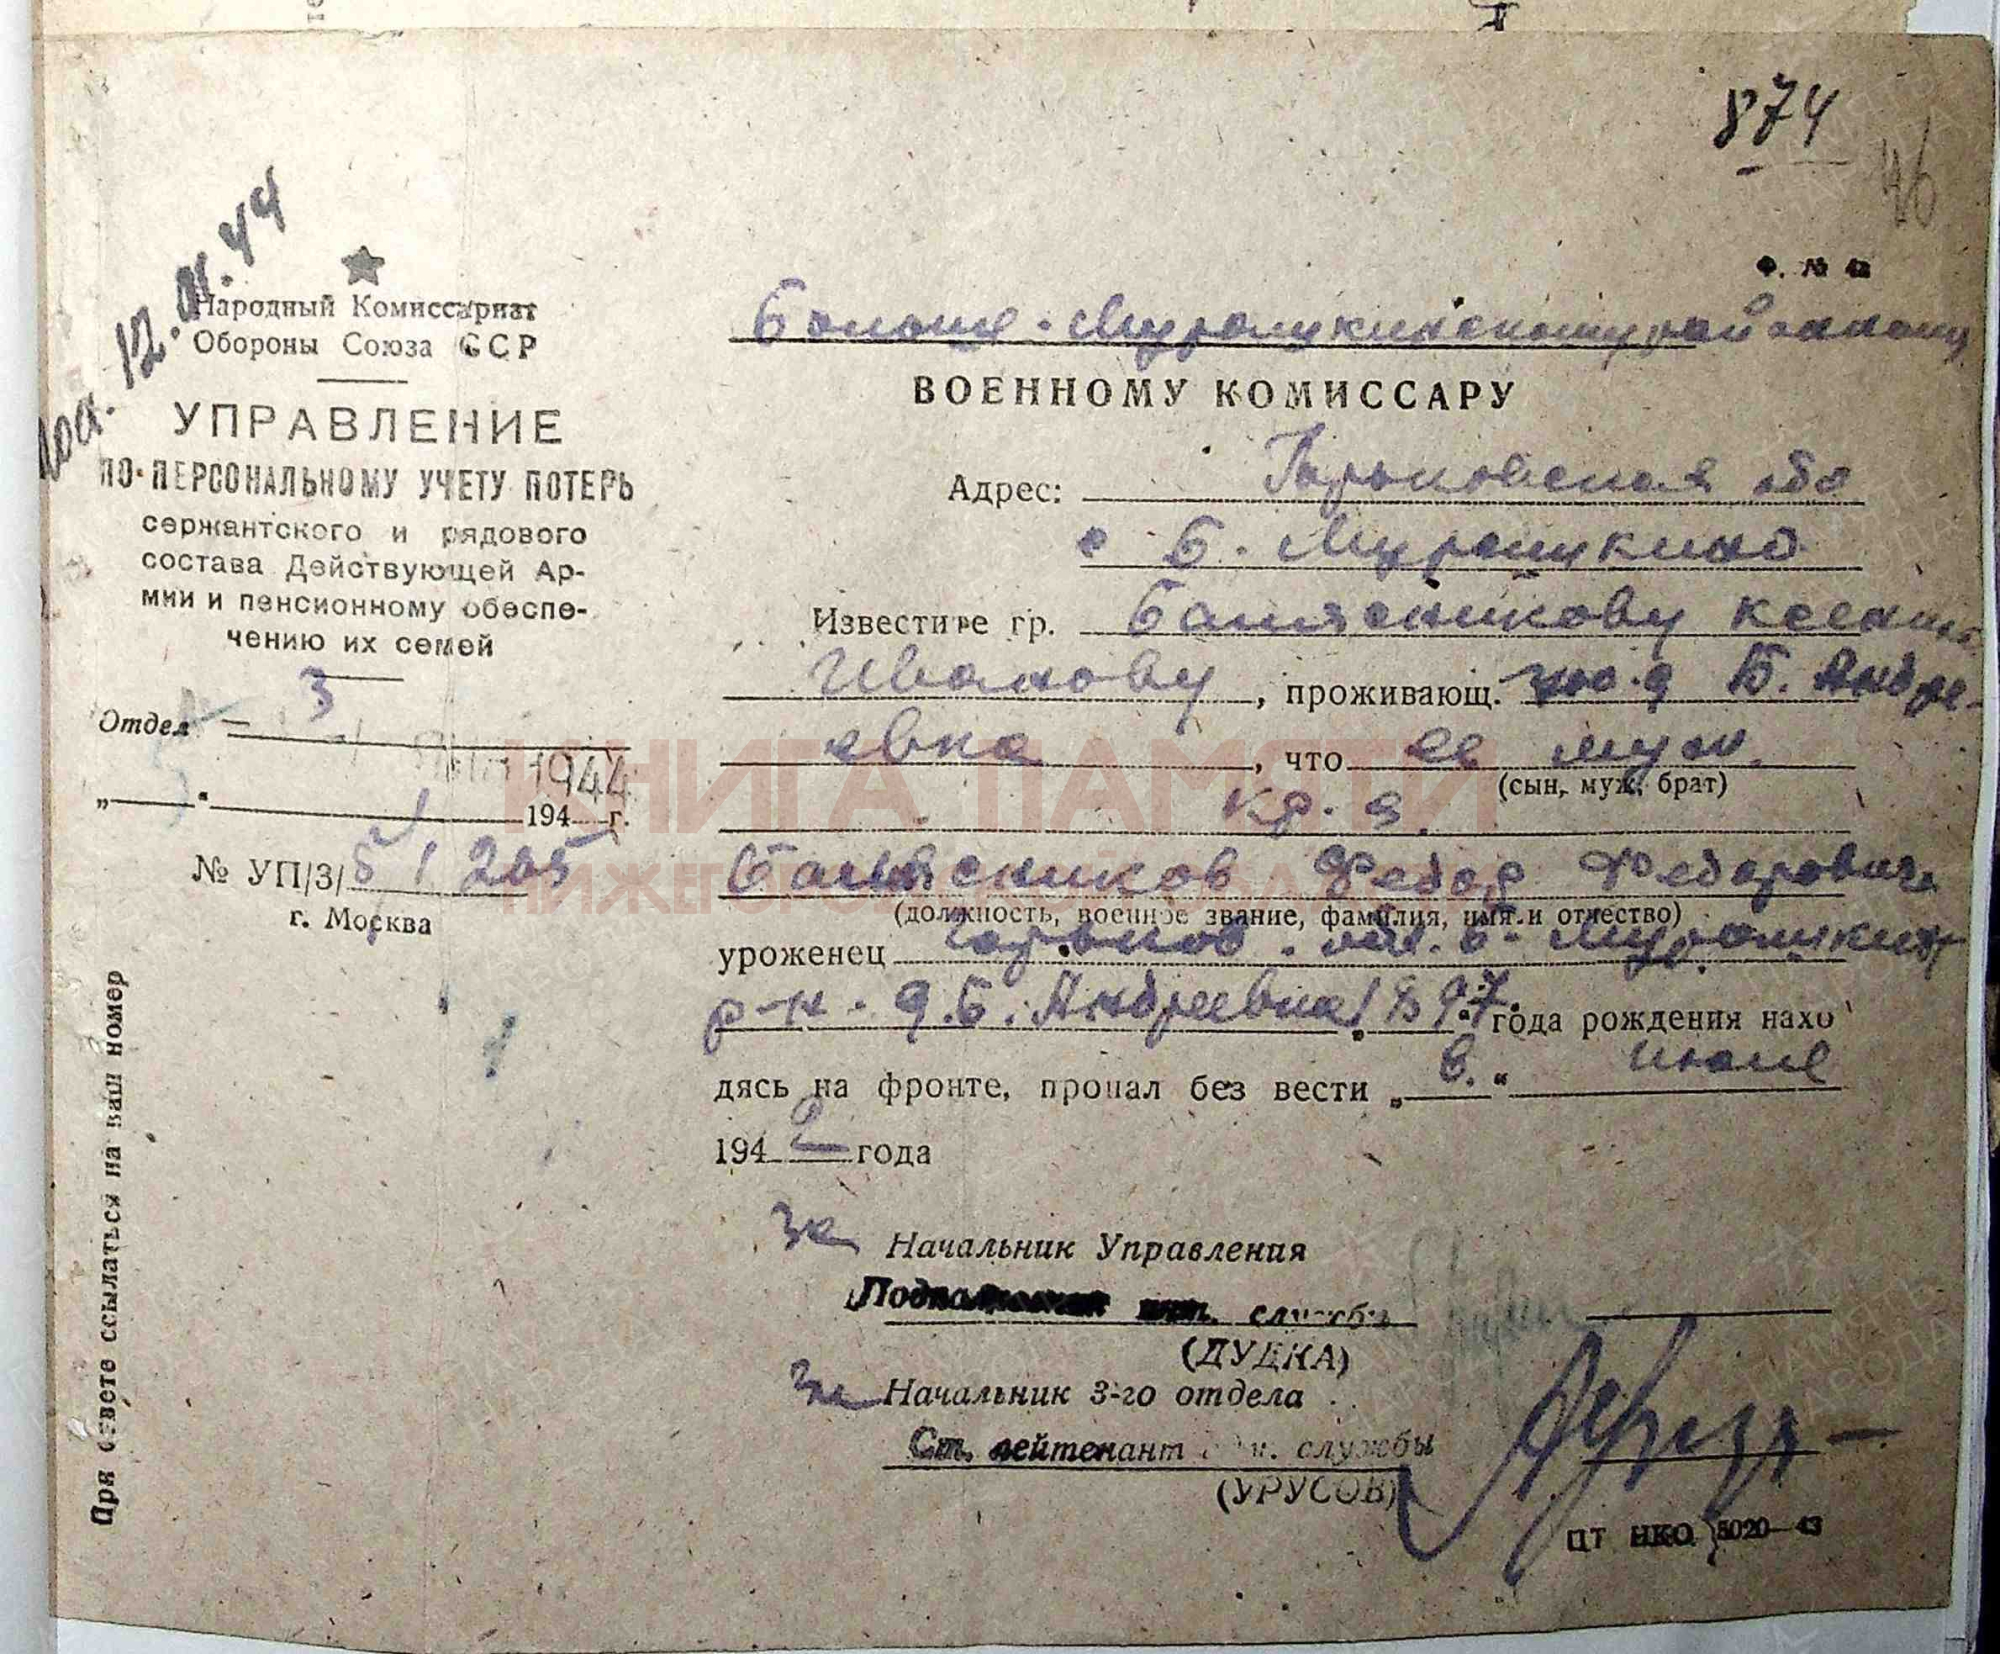 874
46
Ф. № 4а
12.01.44
Народный Комиссариат
Обороны Союза ССР
УПРАВЛЕНИЕ
ПО ПЕРСОНАЛЬНОМУ УЧЕТУ ПОТЕРЬ
сержантского и рядового
состава Действующей Ар-
мии и пенсионному обеспе-
чению их семей
Отдел 3
1944
„ “ 194 г.
№ УП/3/5/205
г. Москва
При ответе ссылаться на ваш номер
Больше-Мурашкинскому районному
ВОЕННОМУ КОМИССАРУ
Адрес: Горьковская обл
с Б. Мурашкино
Известите гр. Балясникову
Иванову, проживающ. д Б. Андре-
евка, что ее муж.
(сын, муж, брат)
кр-ц.
Балясников Федор Федорович
(должность, военное звание, фамилия, имя и отчество)
уроженец Горьков. обл. Б-Мурашкин
р-н. д. Б. Андреевка „1897“ года рождения нахо
дясь на фронте, пропал без вести „в.“ июле
1942 года
за Начальник Управления
службы
(ДУДКА)
за Начальник 3-го отдела
Ст. лейтенант службы
(УРУСОВ)
ЦТ НКО 5020—43
КНИГА ПАМЯТИ